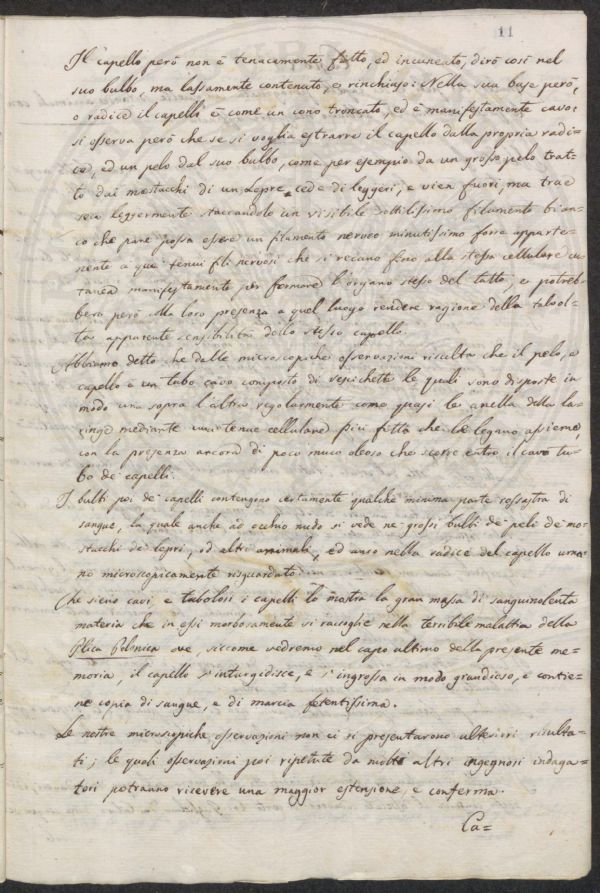 11
Il capello però non è tenacemente fitto, ed incuneato, dirò così nel
suo bulbo, ma lassamente contenuto, e rinchiuso: Nella sua base però,
o radice il capello è come un cono troncato, ed è manifestamente cavo:
si osserva però che se si voglia estrarre il capello dalla propria radi=
ce, ed un pelo dal suo bulbo, come per esempio da un grosso pelo trat=
to dai mostacchi di un Lepre, cede di leggeri, e vien fuori, ma trae
seco leggermente staccandolo un visibile sottilissimo filamento bian=
co che pare possa essere un filamento nerveo minutissimo forse apparte=
nente a que' tenui fili nervosi che si recano fino alla stessa cellulare cu=
tanea manifestamente per formare l'organo stesso del tatto, e potreb=
bero però alla loro presenza a quel luogo rendere ragione della talvol=
ta apparente sensibilità dello stesso capello.
Abbiamo detto che dalle microscopiche osservazioni risulta che il pelo, o
capello è un tubo cavo composto di vescichette le quali sono disposte in
modo una sopra l'altra regolarmente come quasi le anella della la=
ringe mediante una tenue cellulare più fitta che le legano assieme,
con la presenza ancora di poco muco oleoso che scorre entro il cavo tu=
bo de' capelli.
I bulbi poi de' capelli contengono certamente qualche minima parte rossastra di
sangue, la quale anche ad occhio nudo si vede ne' grossi bulbi de' peli de' mo=
stacchi dei lepri, od altri animali, ed anco nella radice del capello uma=
no microscopicamente risguardato.
Che sieno cavi e tubolosi i capelli lo mostra la gran massa di sanguinolenta
materia che in essi morbosamente si raccoglie nella terribile malattia della
Plica Polonica ove, siccome vedremo nel capo ultimo della presente me=
moria, il capello s'inturgidisce, e s'ingrossa in modo grandioso, e contie=
ne copia di sangue, e di marcia fetentissima.
Le nostre microscopiche osservazioni non ci si presentarono ulteriori risulta=
ti; le quali osservazioni poi ripetute da molti altri ingegnosi indaga=
tori potranno ricevere una maggior estensione, e conferma.
Ca=